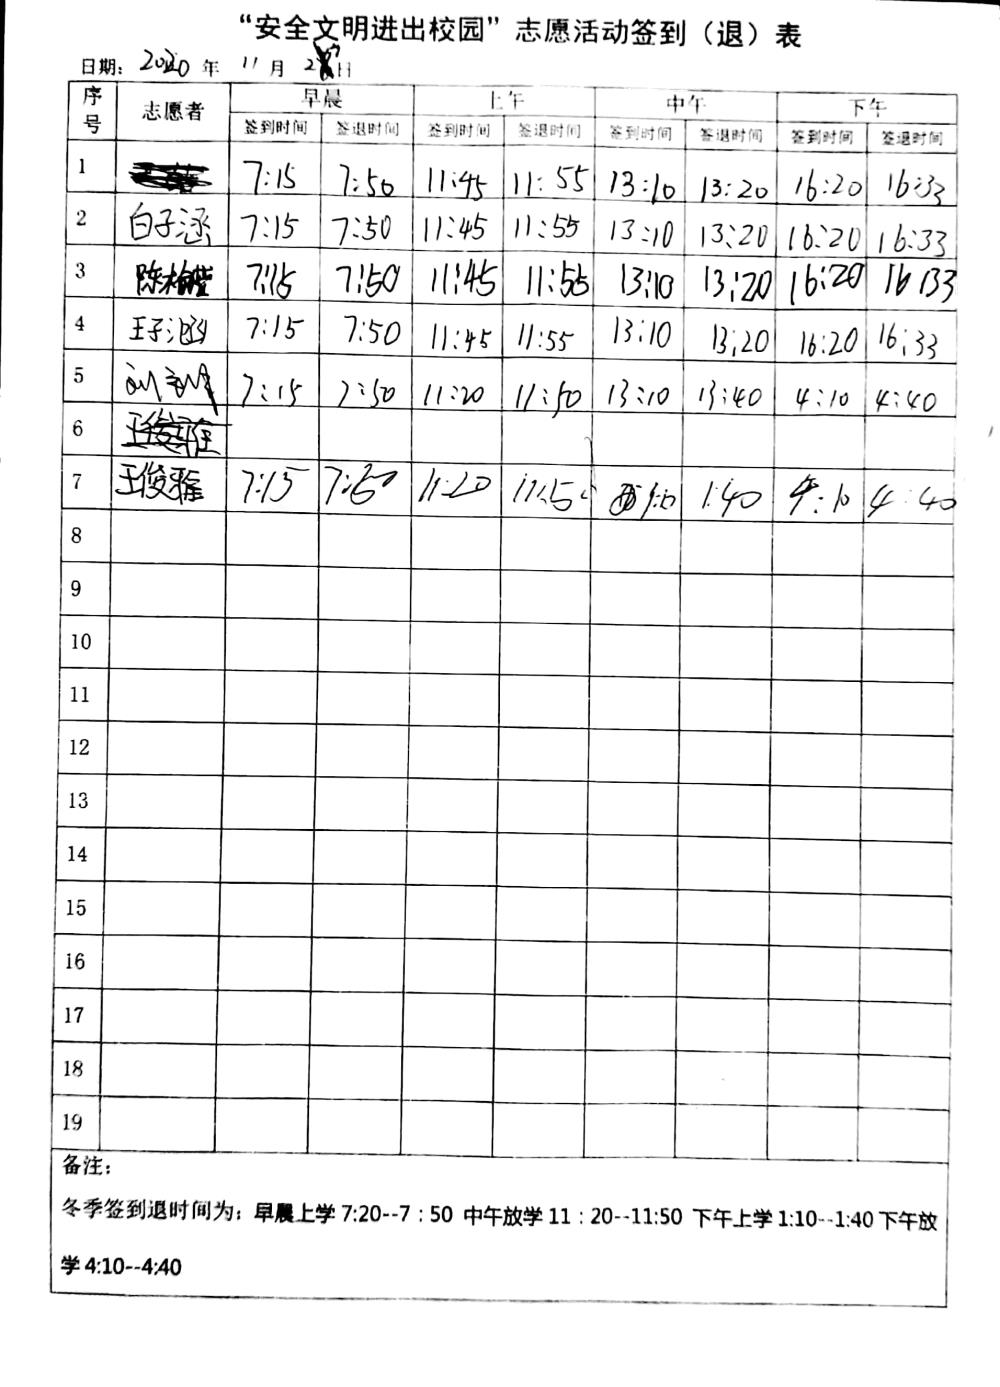 “安全文明进出校园”志愿活动签到（退）表
日期： 2020 年 11 月 2 日
序号 志愿者 早晨 上午 中午 下午
签到时间 签退时间 签到时间 签退时间 签到时间 签退时间 签到时间 签退时间
1 7:15 7:50 11:45 11:55 13:10 13:20 16:20 16:33
2 白子涵 7:15 7:50 11:45 11:55 13:10 13:20 16:20 16:33
3 陈 7:15 7:50 11:45 11:55 13:10 13:20 16:20 16:33
4 王子涵 7:15 7:50 11:45 11:55 13:10 13:20 16:20 16:33
5 7:15 7:50 11:20 11:50 13:10 13:40 4:10 4:40
6
7 王俊雅 7:15 7:50 11:20 11:50 1:10 1:40 4:10 4:40
8
9
10
11
12
13
14
15
16
17
18
19
备注：
冬季签到退时间为：早晨上学 7:20--7：50 中午放学 11：20--11:50 下午上学 1:10--1:40 下午放
学 4:10--4:40